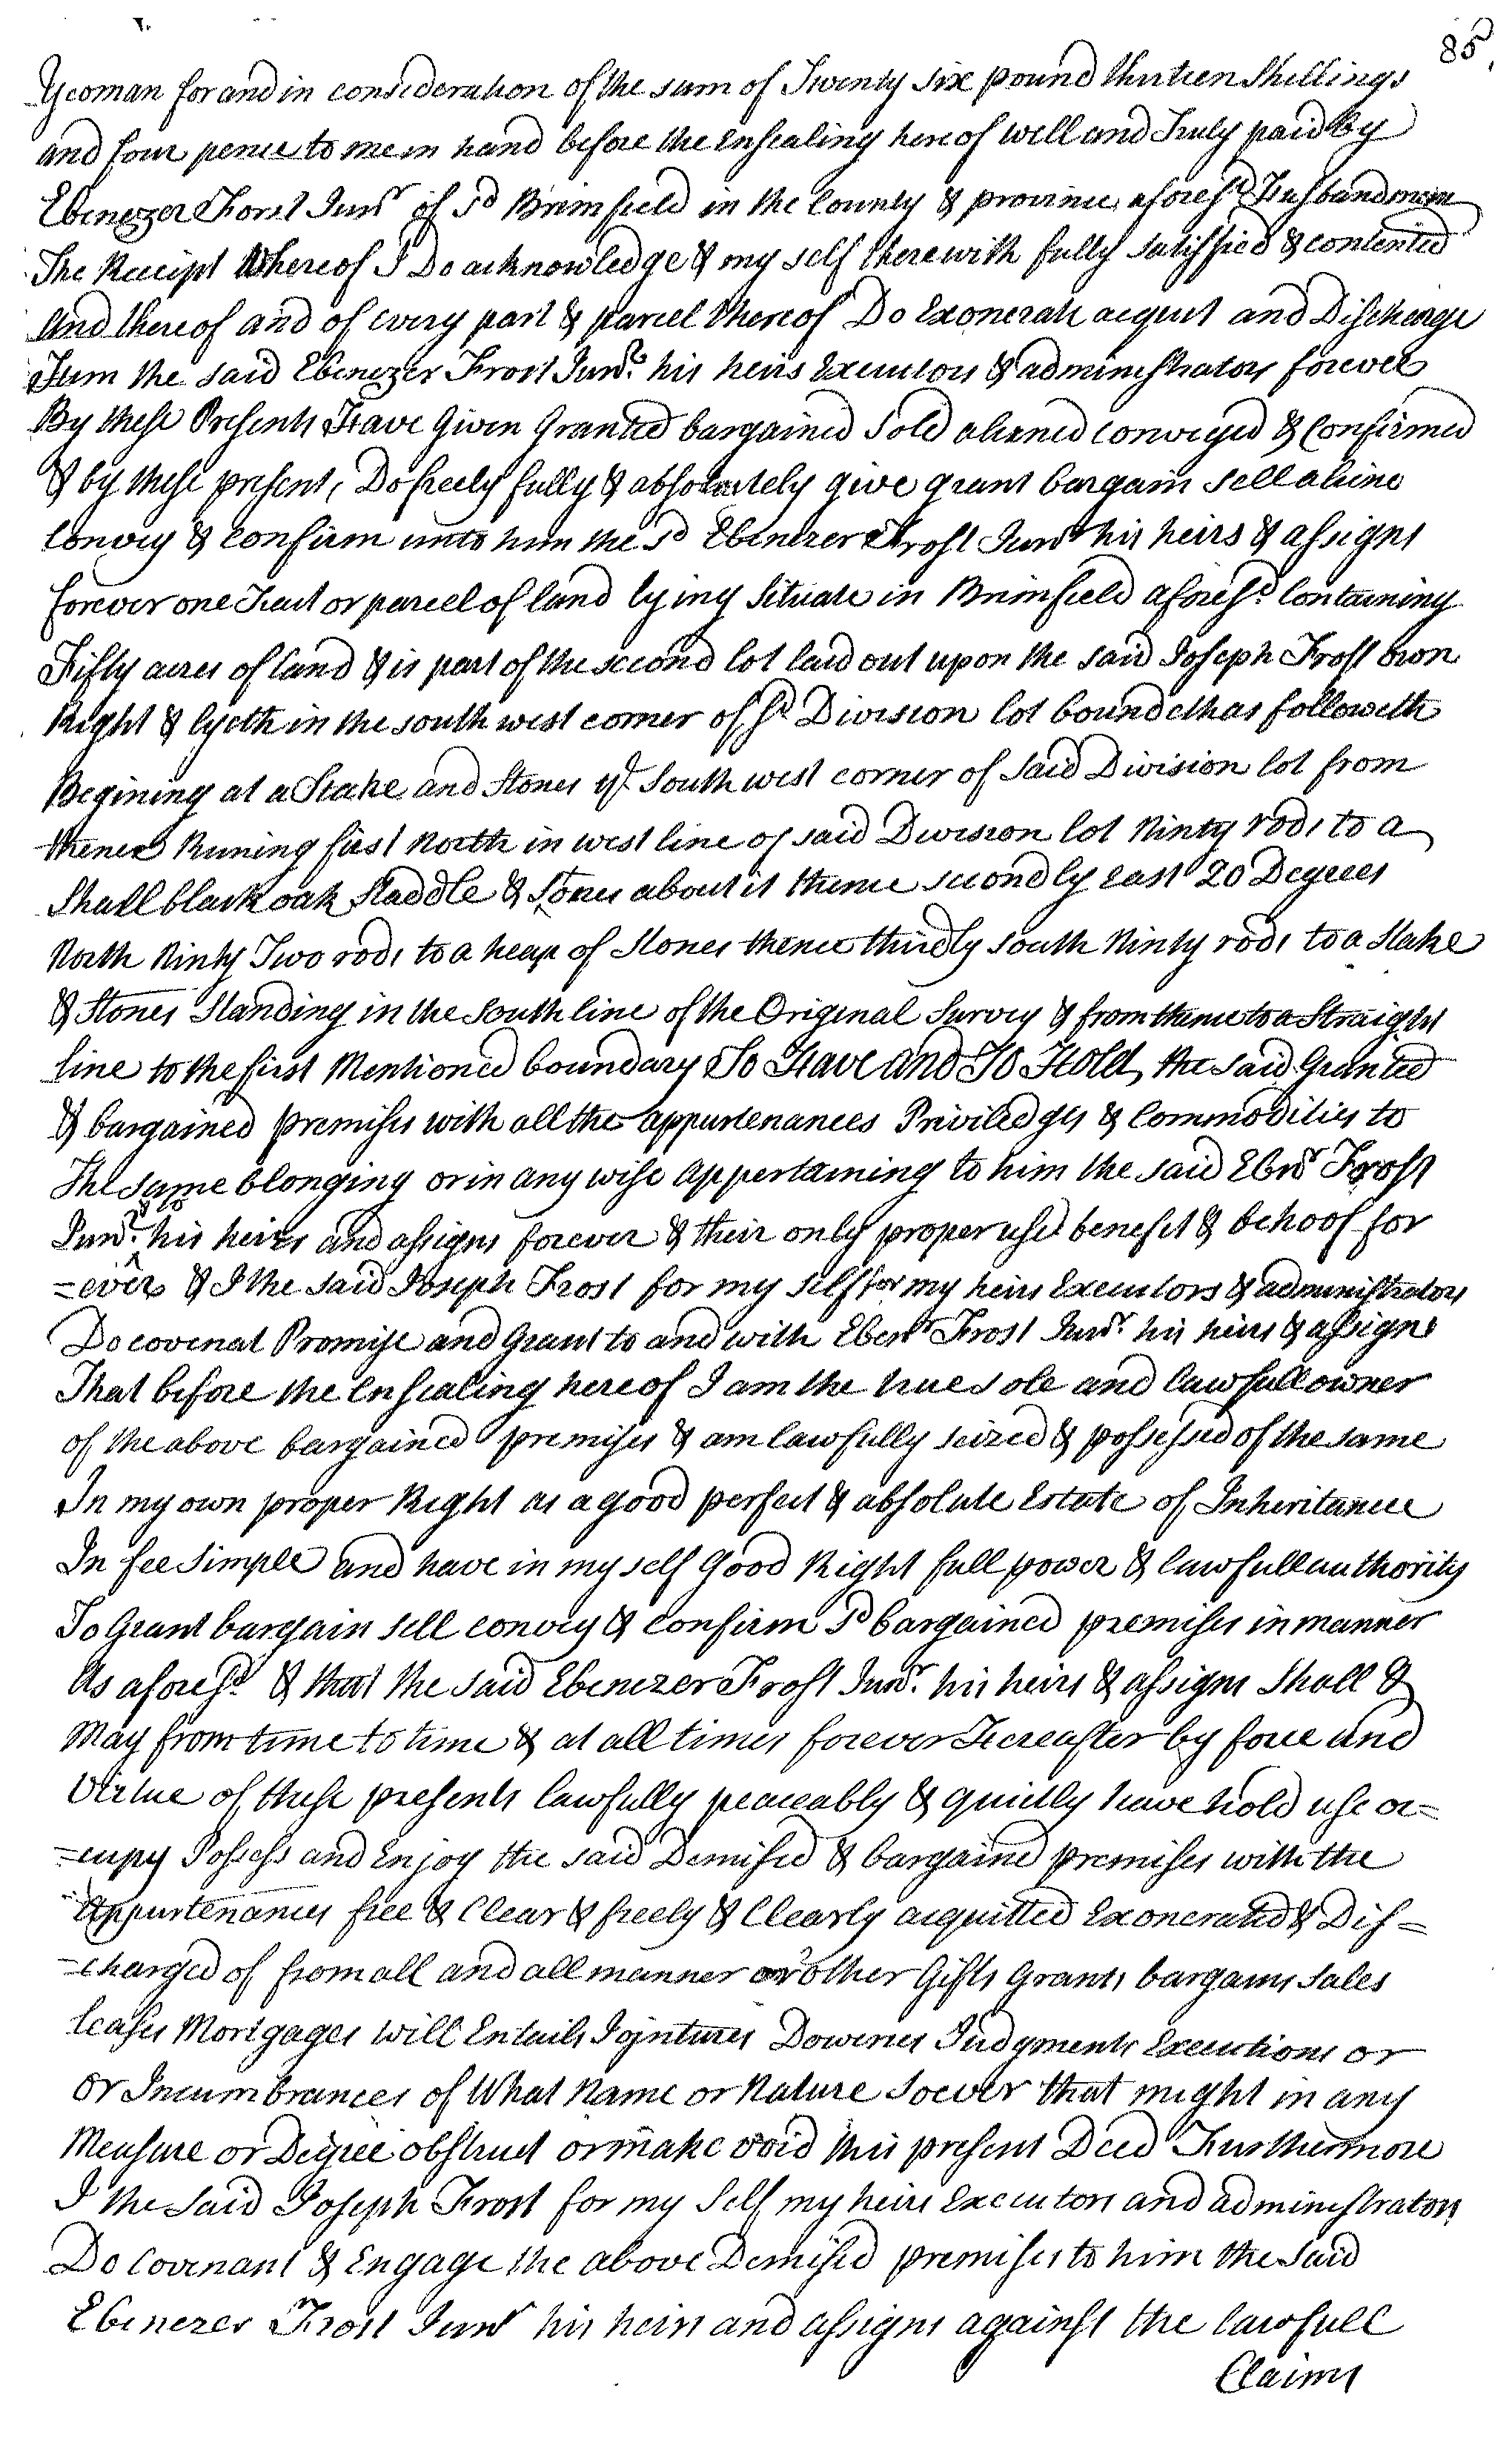 85
Yeoman for and in consideration of the sum of Twenty six pound thirteen Shillings
and four pence to me in hand before the Ensealing hereof well and Truly paid By
Ebenezer Forst Junr of sd Brimfield in the County & province aforesd Husbandman
The Receipt Whereof I Do acknowledge & my self therewith fully satisfied & contented
And thereof and of every part & parcel thereof Do Exonerate acquit and Discharge
Him the said Ebenezer Frost Junr. his heirs Executors & administrators forever
By these Presents Have Given Granted bargained Sold aliened conveyed & Confirmed
& by these present, Do freely fully & absolutely give grant bargain sell aliene
Convey & Confirm unto him the sd Ebenezer Frost Junr his heirs & assigns
forever one Tract or parcel of land lying Situate in Brimfield aforesd. Containing
Fifty acres of land & is part of the second lot laid out upon the said Joseph Frost own
Right & lyeth in the south west corner of sd Division lot bounded as followeth
Begining at a Stake and Stones ye South west corner of said Division lot from
thence Runing first North in west line of said Division lot Ninty rods to a
Small black oak Staddle & Stones about it thence secondly east 20 Degrees
North Ninty Two rods to a heap of Stones thence thirdly south Ninty rods to a Stake
& Stones Standing in the South line of the Original Survey & from thence to a Straight
line to the first Mentioned boundary To Have and To Hold the said Granted
& bargained premises with all the appurtenances Priviledges & Commodities to
The same blonging or in any wise appertaining to him the said Ebnr Frost
Junr. his heirs and assigns forever & their only proper use benefit & behoof for
=ever & I the said Joseph Frost for my self for my heirs Executors & administrators
Do covenat Promise and Grant to and with Ebenr Frost Junr. his heirs & assigns
That before the Ensealing hereof I am the true sole and lawfull owner
of the above bargained premises & am lawfully seized & possessed of the same
In my own proper Right as a good perfect & absolute Estate of Inheritance
In fee Simple and have in my self Good Right full power & lawfull authority
To Grant bargain sell convey & confirm sd bargained premises in manner
As aforesd. & that the said Ebenezer Frost Junr. his heirs & assigns Shall &
May from time to time & at all times forever Hereafter by force and
Virtue of these presents lawfully peaceably & quietly have hold use oc=
=cupy Possess and Enjoy the said Demised & bargaind premises with the
Appurtenances free & Clear & freely & Clearly acquitted Exonerated & Dis=
=charged of from all and all manner or other Gifts Grants bargains Sales
leases Mortgages Will Entails Jointures Doweries Judgments Executions or
or Incumbrances of What Name or Nature Soever that might in any
Measure or Degree obstruct or make void this present Deed Furthermore
I the Said Joseph Frost for my Self my heirs Executors and administrators
Do Covenant & Engage the above Demised premises to him the Said
Ebenezer Frost Junr his heirs and assigns against the lawfull
Claims